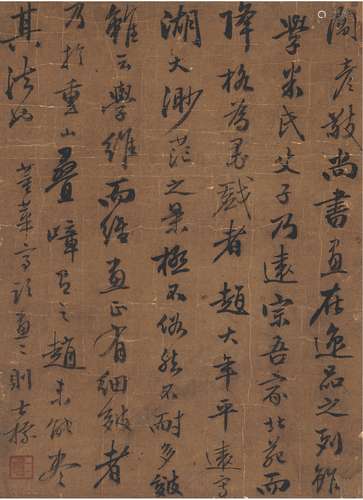 高彥敬尚書畫在逸品之列雖
學米氏父子乃遠宗吾家北苑而
降格為墨戲者趙大年平遠寫
湖天渺茫之景極不俗然不耐多皴
雖云學維而維畫正有細皴者
乃於重山疊嶂有之趙未能盡
其法也 董華亭畫二則士標